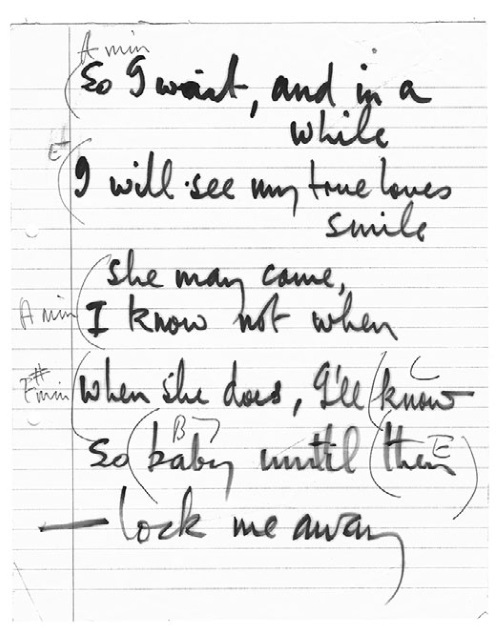 A min
So I wait, and in a
while
E+
I will see my true loves
smile
she may come,
A min
I know not when
F# min
when she does, I'll know
C
B7
So baby until then
E
— lock me away